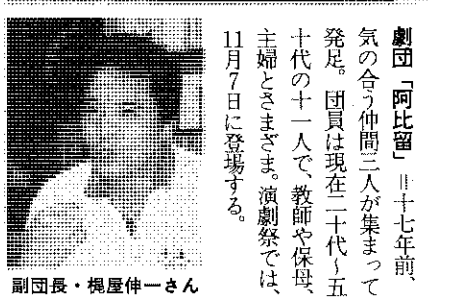 劇団「阿比留」＝十七年前、
気の合う仲間三人が集まって
発足。団員は現在二十代～五
十代の十一人で、教師や保母、
主婦とさまざま。演劇祭では、
11月7日に登場する。
副団長・梶屋伸一さん